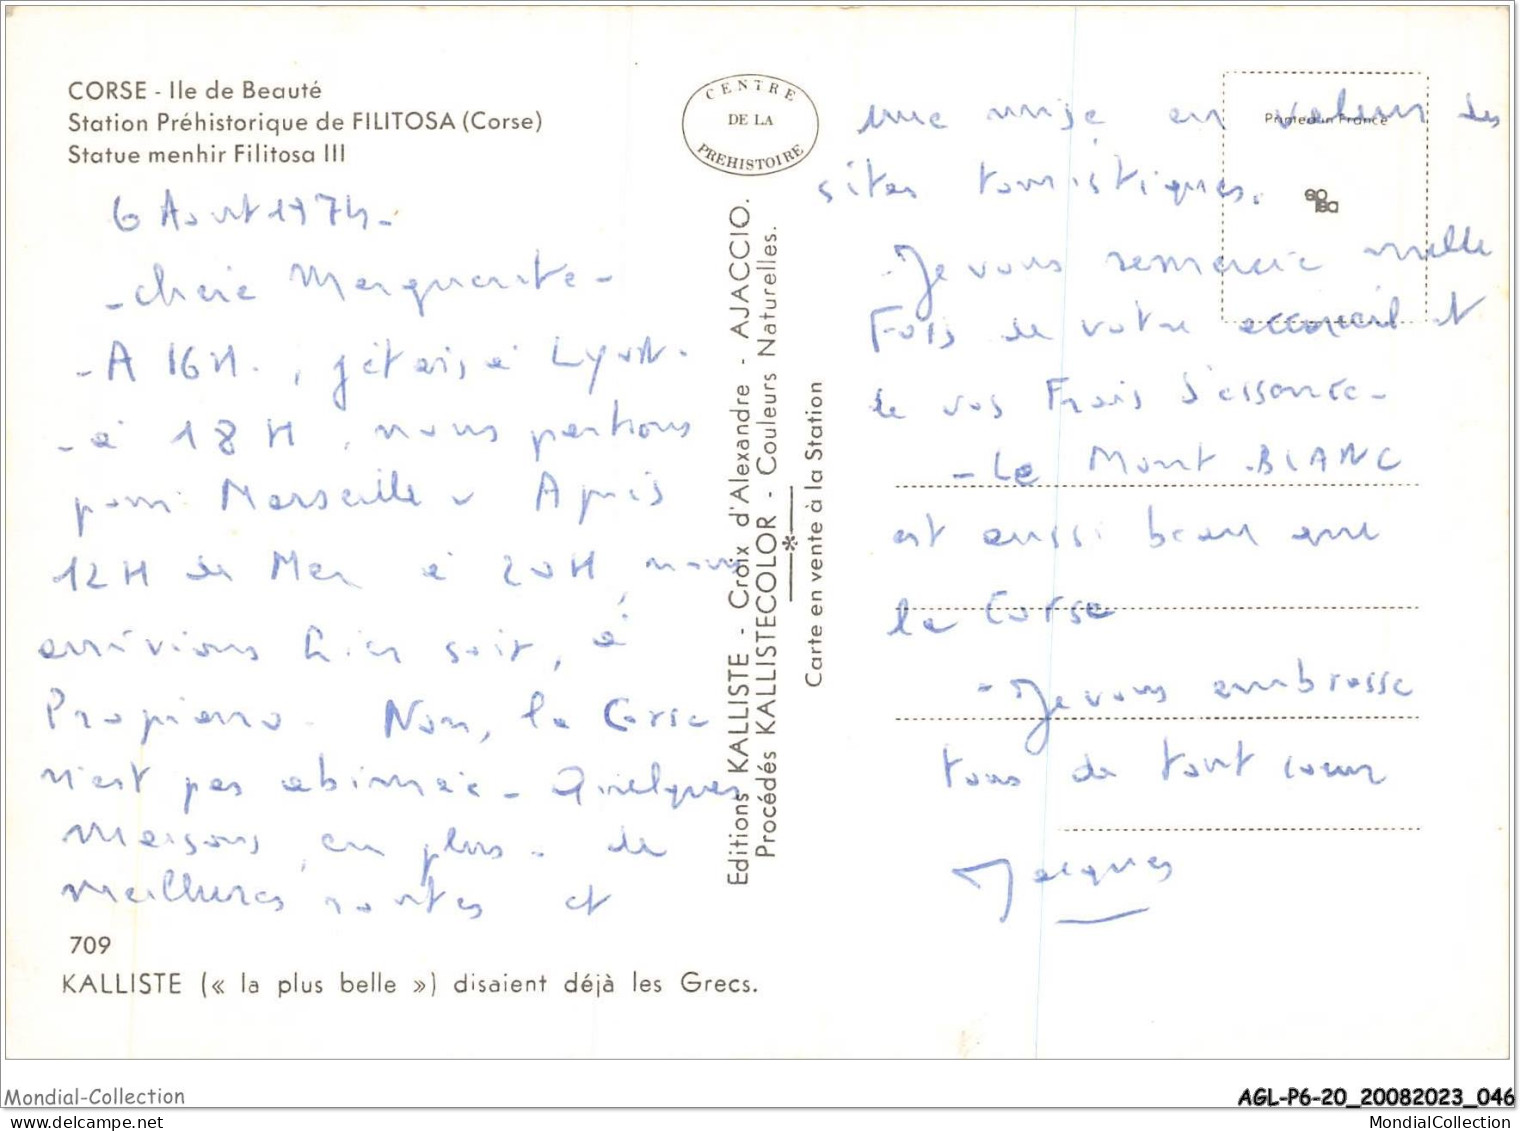 CORSE - Ile de Beauté
Station Préhistorique de FILITOSA (Corse)
Statue menhir Filitosa III
6 Aout 1974.
- chère Marguerite -
- A 16H. , j'étais à Lyon.
- à 18H, nous partions
pour Marseille. Après
12H de Mer à 20H, nous
arrivions hier soir, à
Propriano. Non, la Corse
n'est pas abimée - Quelques
maisons en plus - de
meilleures routes et
709
KALLISTE (« la plus belle ») disaient déjà les Grecs.
CENTRE
DE LA
PREHISTOIRE
Editions KALLISTE - Croix d'Alexandre - AJACCIO.
Procédés KALLISTECOLOR - Couleurs Naturelles.
Carte en vente à la Station
Printed in France
une mise en valeur des
sites touristiques.
Je vous remercie mille
Fois de votre accueil et
de vos Frais d'essence -
- Le Mont BLANC
est aussi beau que
la Corse
- Je vous embrasse
tous de tout coeur
Jacques
Mondial-Collection
AGL-P6-20_20082023_046
MondialCollection